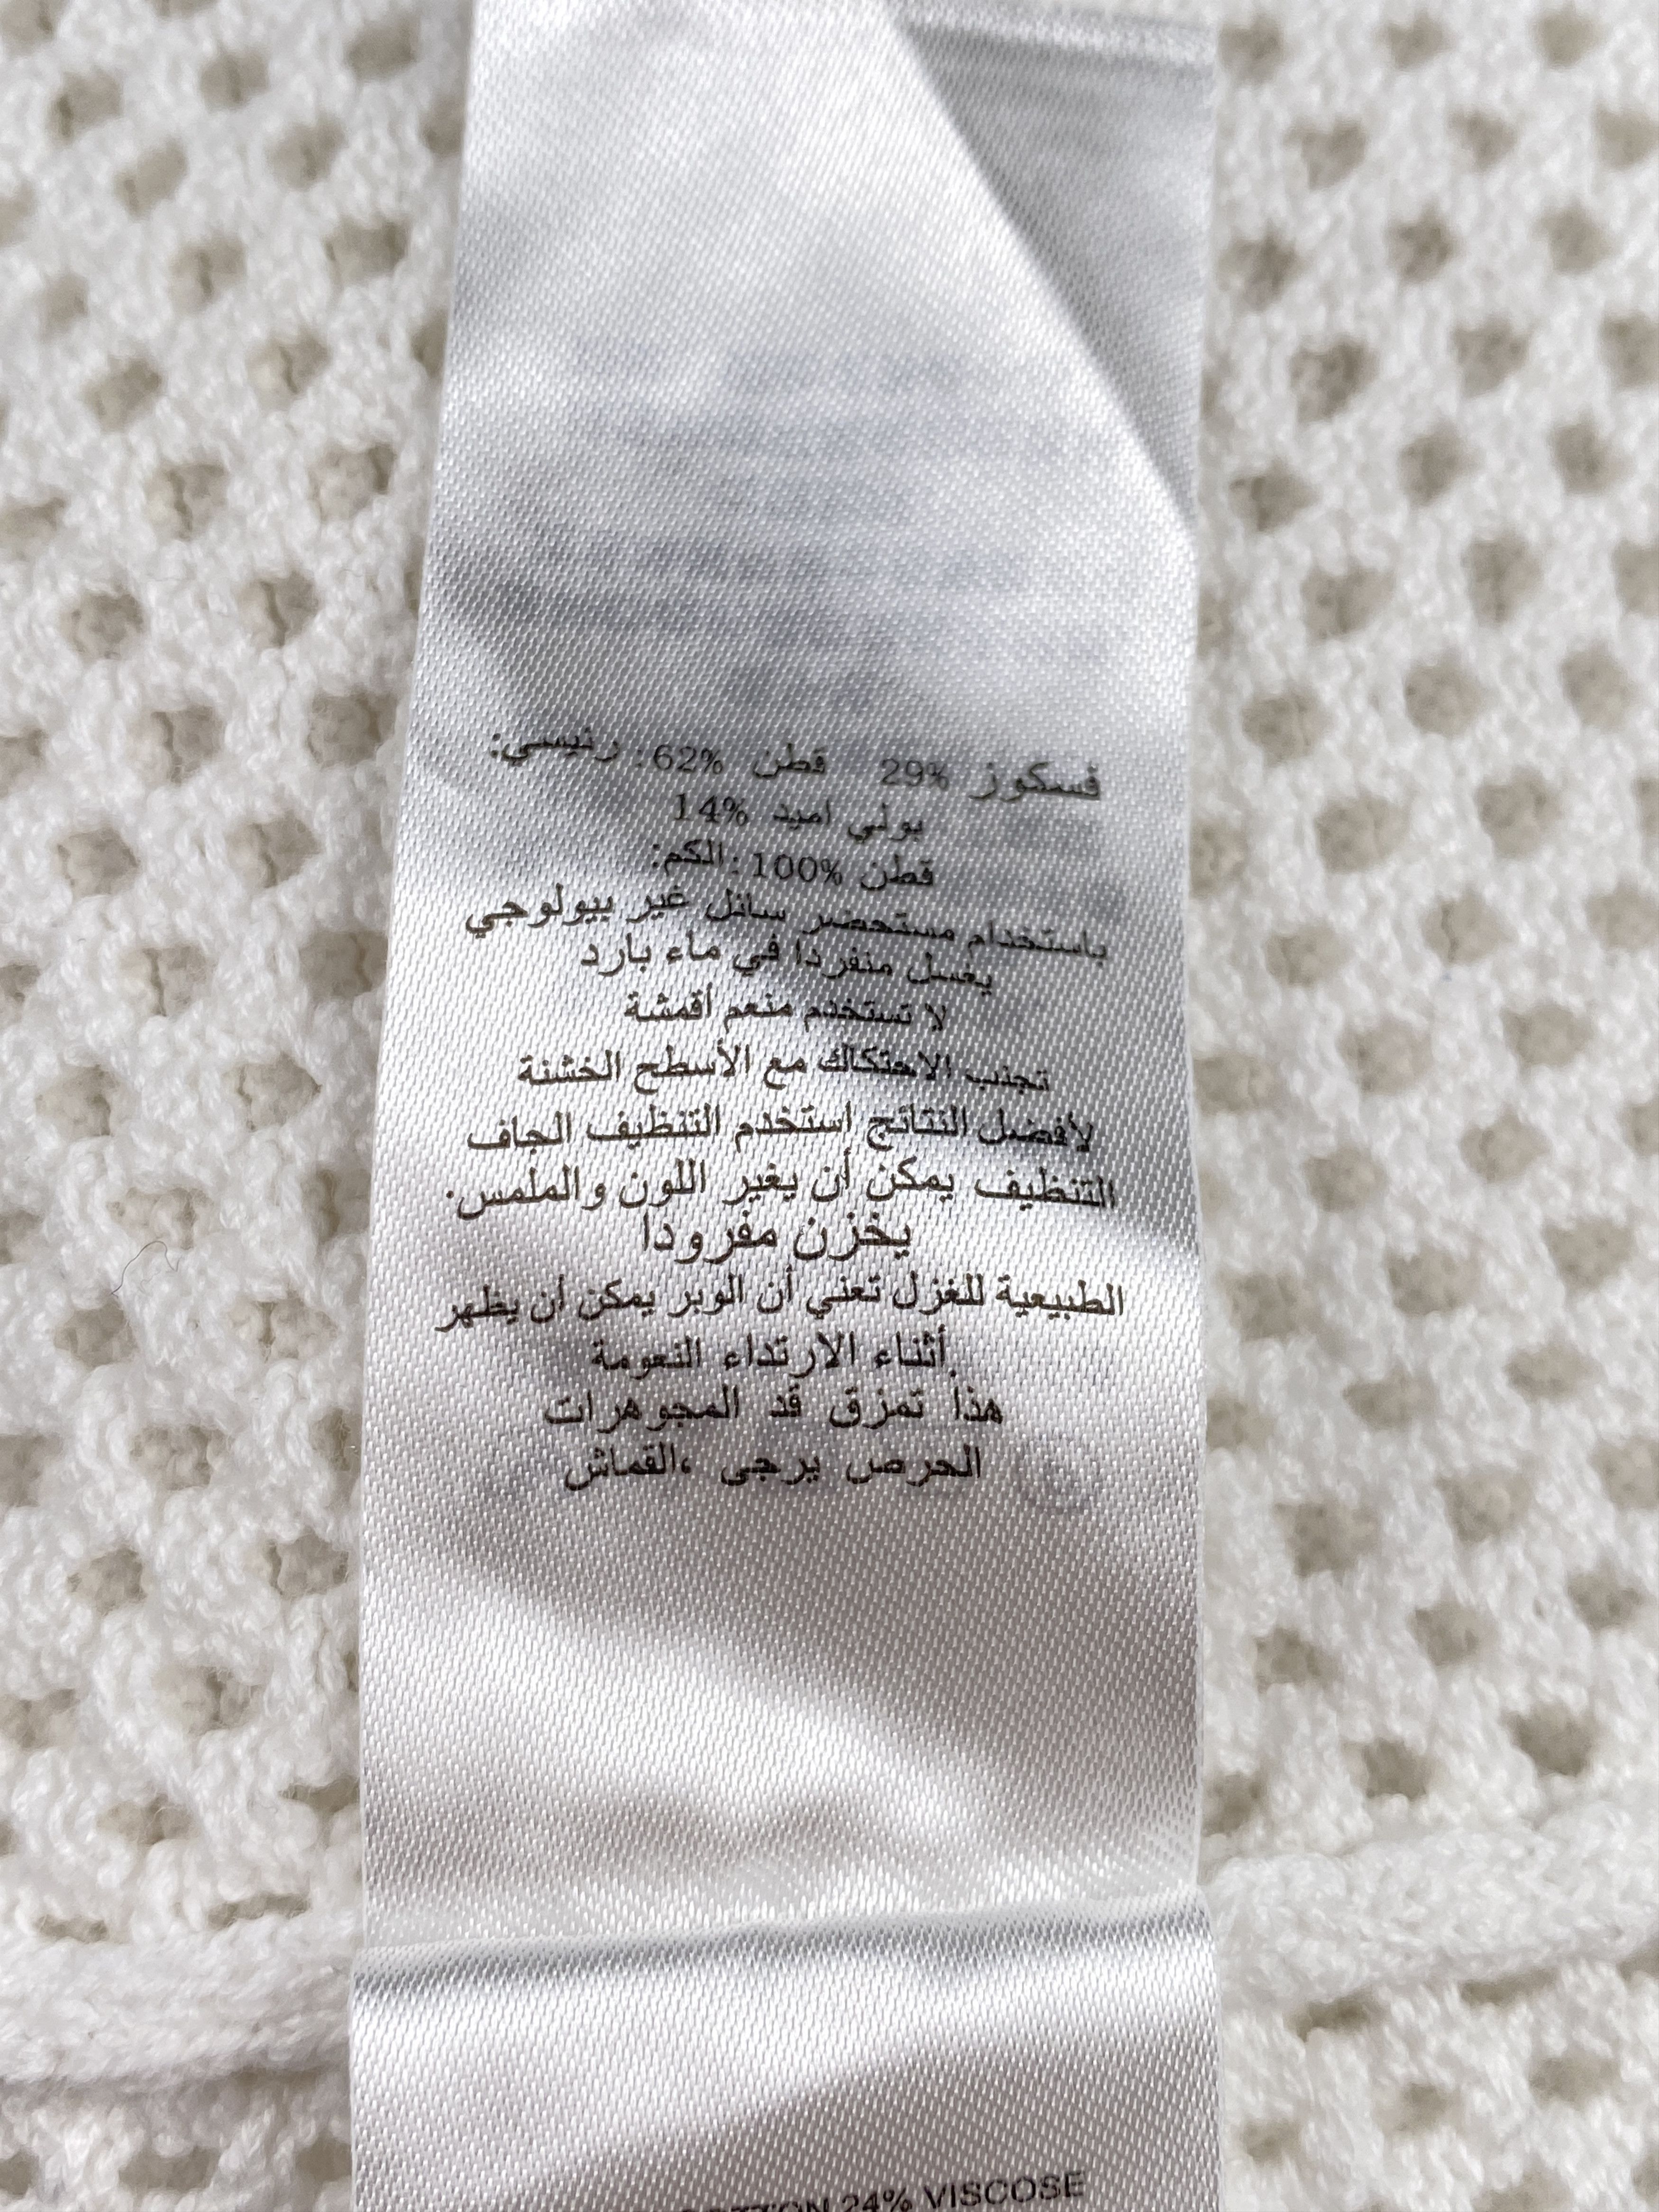 فسكوز 29% قطن 62%: رئيسي:
بولي اميد 14%
قطن 100%: الكم:
باستخدام مستحضر سائل غير بيولوجي
يغسل منفردا في ماء بارد
لا تستخدم منعم أقمشة
تجنب الاحتكاك مع الأسطح الخشنة
لأفضل النتائج استخدم التنظيف الجاف
التنظيف يمكن أن يغير اللون والملمس.
يخزن مفرودا
الطبيعية للغزل تعني أن الوبر يمكن أن يظهر
أثناء الارتداء النعومة
هذا تمزق قد المجوهرات
الحرص يرجى ،القماش
24% VISCOSE